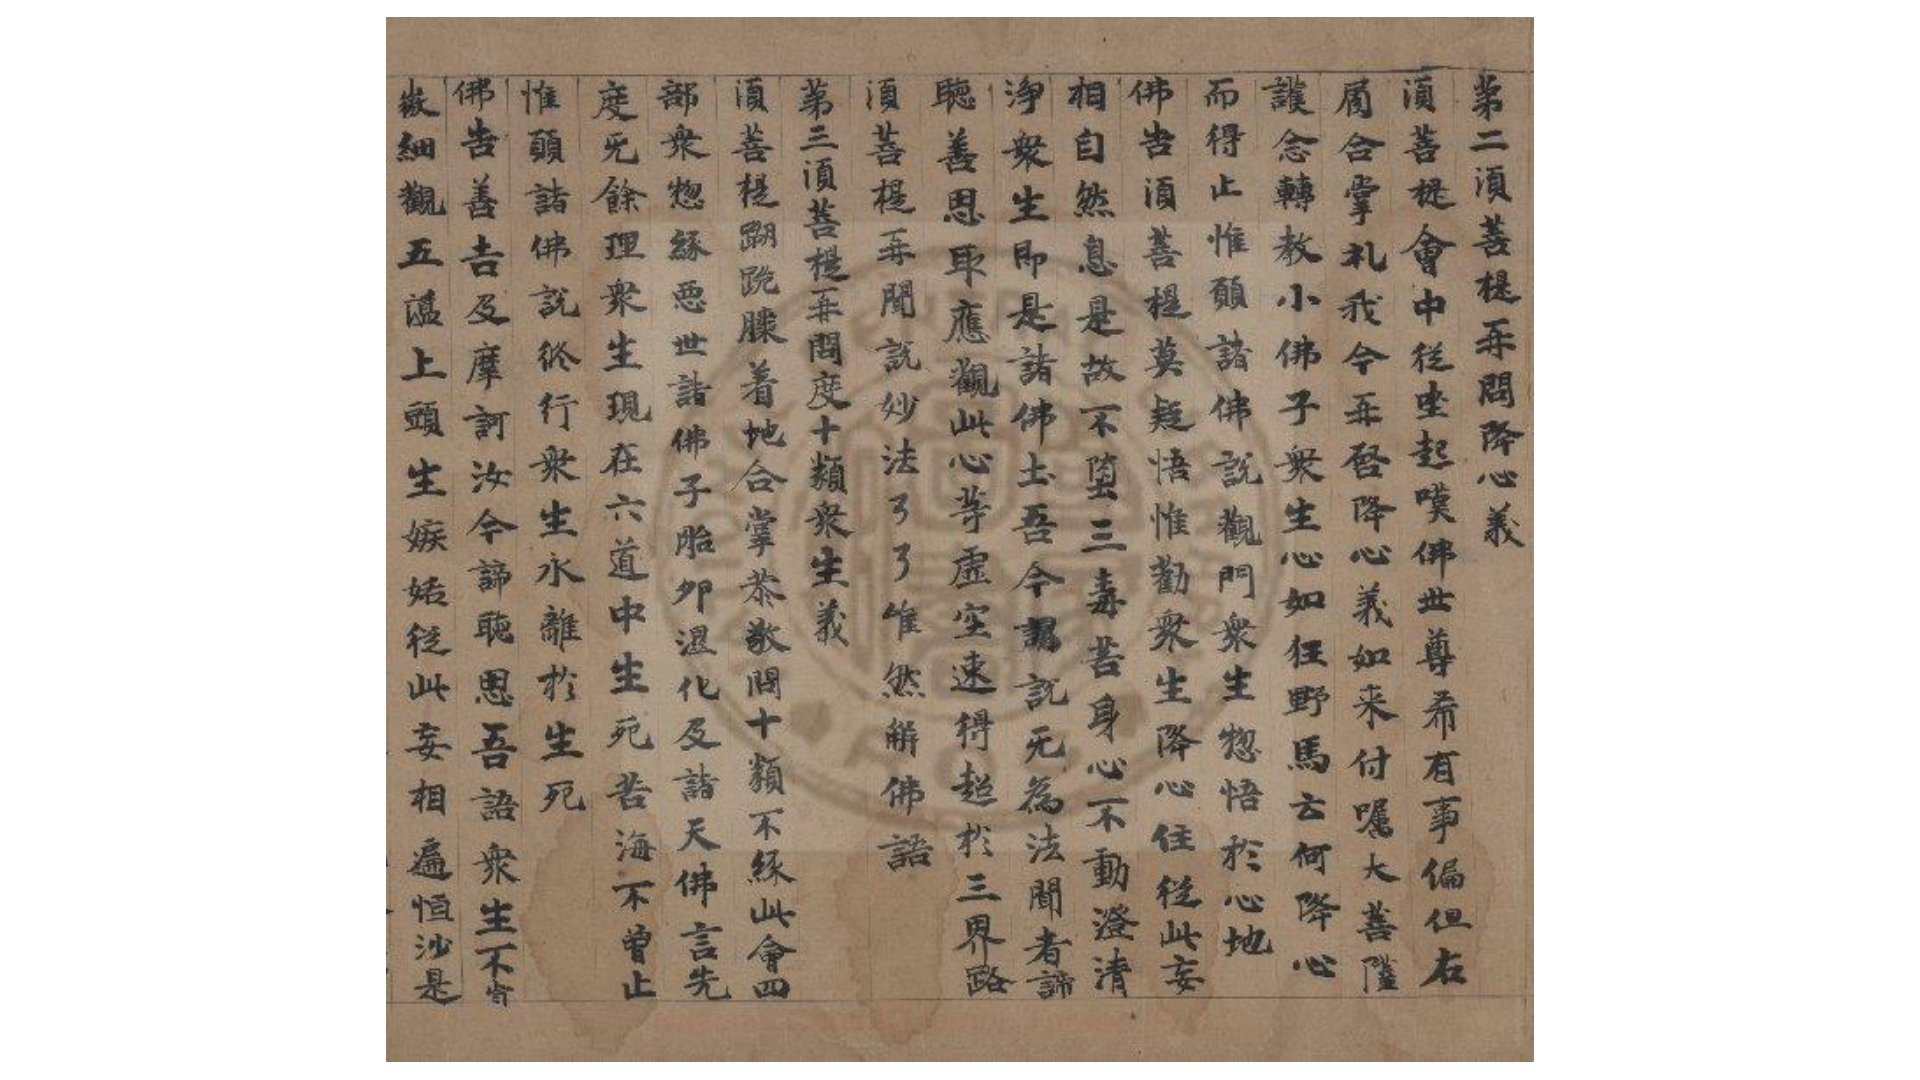 第二須菩提再問降心義
須菩提會中從坐起嘆佛世尊希有事偏但右
肩合掌礼我今再啓降心義如来付嘱大菩薩
護念轉教小佛子衆生心如狂野馬云何降心
而得止惟願諸佛說觀門衆生惣悟於心地
佛告須菩提莫疑悟惟勸衆生降心住從此妄
相自然息是故不堕三毒苦身心不動澄清
淨衆生即是諸佛土吾今説无為法聞者諦
聴善思耶應觀此心等虚空速得超於三界路
須菩提再聞說妙法了了惟然解佛語
第三須菩提再問度十類衆生義
須菩提䠒跪膝着地合掌恭敬問十類不緣此會四
部衆惣緣悪世諸佛子胎卵濕化及諸天佛言先
度无餘理衆生現在六道中生死苦海不曾止
惟願諸佛說終行衆生永離於生死
佛告善吉及摩訶汝今諦聴思吾語衆生不肯
微細觀五藴上頭生嫉妬從此妄相遍恒沙是